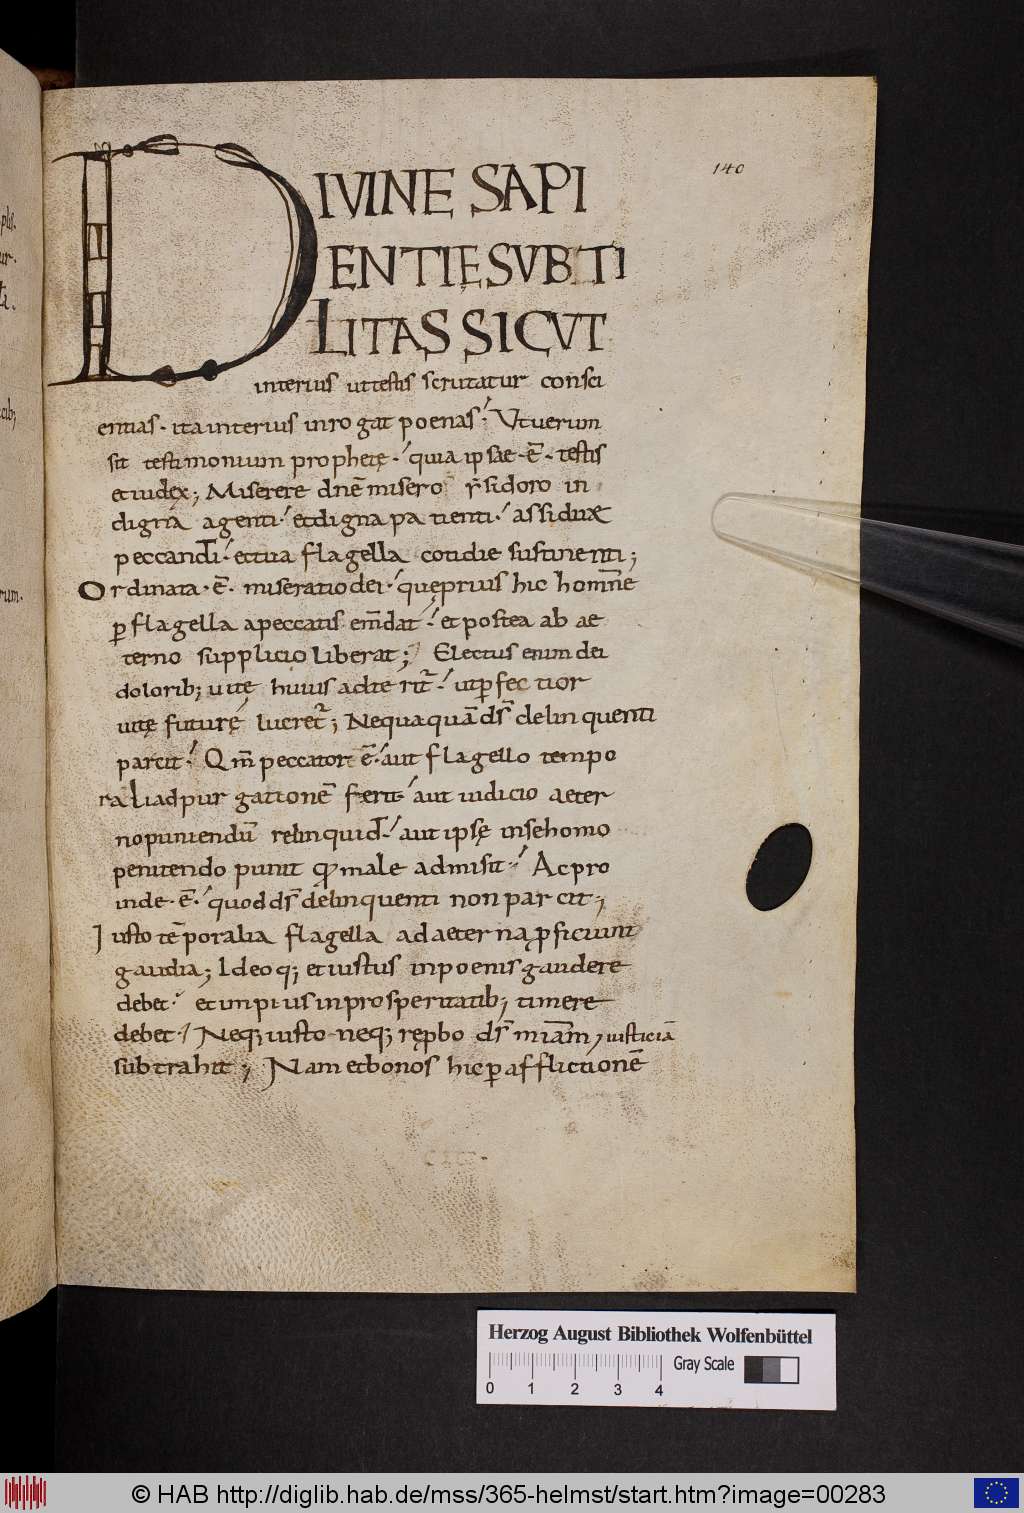 140
DIVINE SAPI
ENTIĘ SVBTI
LITAS SICVT
interius ut testis scrutatur consci
entias · ita interius inrogat poenas · Ut uerum
sit testimonium prophetę · quia ipsae · ē · testis
et iudex ; Miserere dnē misero ysidoro in
digna agenti · et digna patienti · assiduae
peccandi · et tua flagella cotidie sustinenti ;
Ordinata · ē · miseratio dei · quę prius hic hominē
p flagella a peccatis emdat · et postea ab ae
terno supplicio liberat ; Electus enim dei
dolorib; uitę huius adteritr · ut pfectior
uitę futurę lucretr ; Nequaquā ds delinquenti
parcit · Qm peccatorē · aut flagello tempo
rali ad purgationē ferit · aut iudicio aeter
no puniendū relinquid · aut ipsę in se homo
penitendo punit q male admisit · Ac pro
inde · ē · quod ds delinquenti non parcit ;
Iusto tēporalia flagella ad aeterna pficiunt
gaudia ; Ideoq; et iustus in poenis gaudere
debet · et impius in prosperitatib; timere
debet · Neq; iusto neq; repbo ds miam ; iusticiā
subtrahit ; Nam et bonos hic p afflictionē
Herzog August Bibliothek Wolfenbüttel
Gray Scale
0 1 2 3 4
© HAB http://diglib.hab.de/mss/365-helmst/start.htm?image=00283